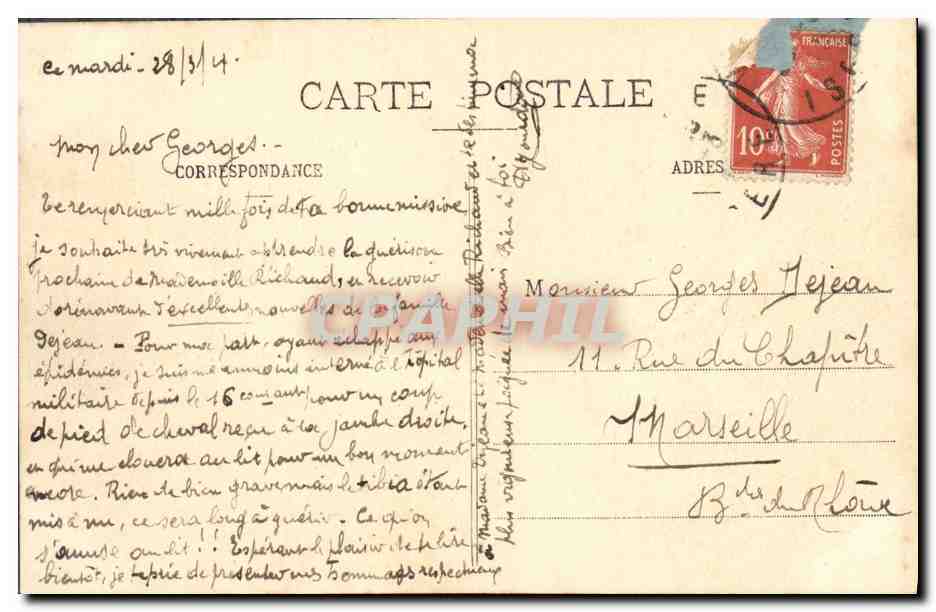 ce mardi - 28/3/4.
CARTE POSTALE
mon cher Georges.
CORRESPONDANCE
Te remerciant mille fois de ta bonne missive
je souhaite très vivement apprendre la guérison
prochaine de Mademoiselle Richaud, en recevoir
dorénavant d'excellentes nouvelles de la famille
Dejean. - Pour ma part, ayant échappé aux
épidémies, je suis néanmoins interné à l'hôpital
militaire depuis le 16 courant pour un coup
de pied de cheval reçu à la jambe droite,
et qui me clouera au lit pour un bon moment
encore. Rien de bien grave mais le tibia étant
mis à nu, ce sera long à guérir. Ce qu'on
s'amuse au lit!! Espérant le plaisir de te lire
bientôt, je te prie de présenter mes hommages respectueux
à Madame Dejean et Mademoiselle Richaud et de
plus vigoureuse poignée de main Bien à toi
ADRES
FRANÇAISE
10c
POSTES
Monsieur Georges Dejean
11. Rue du Chapitre
Marseille
Bches du Rhône
CPAPHIL